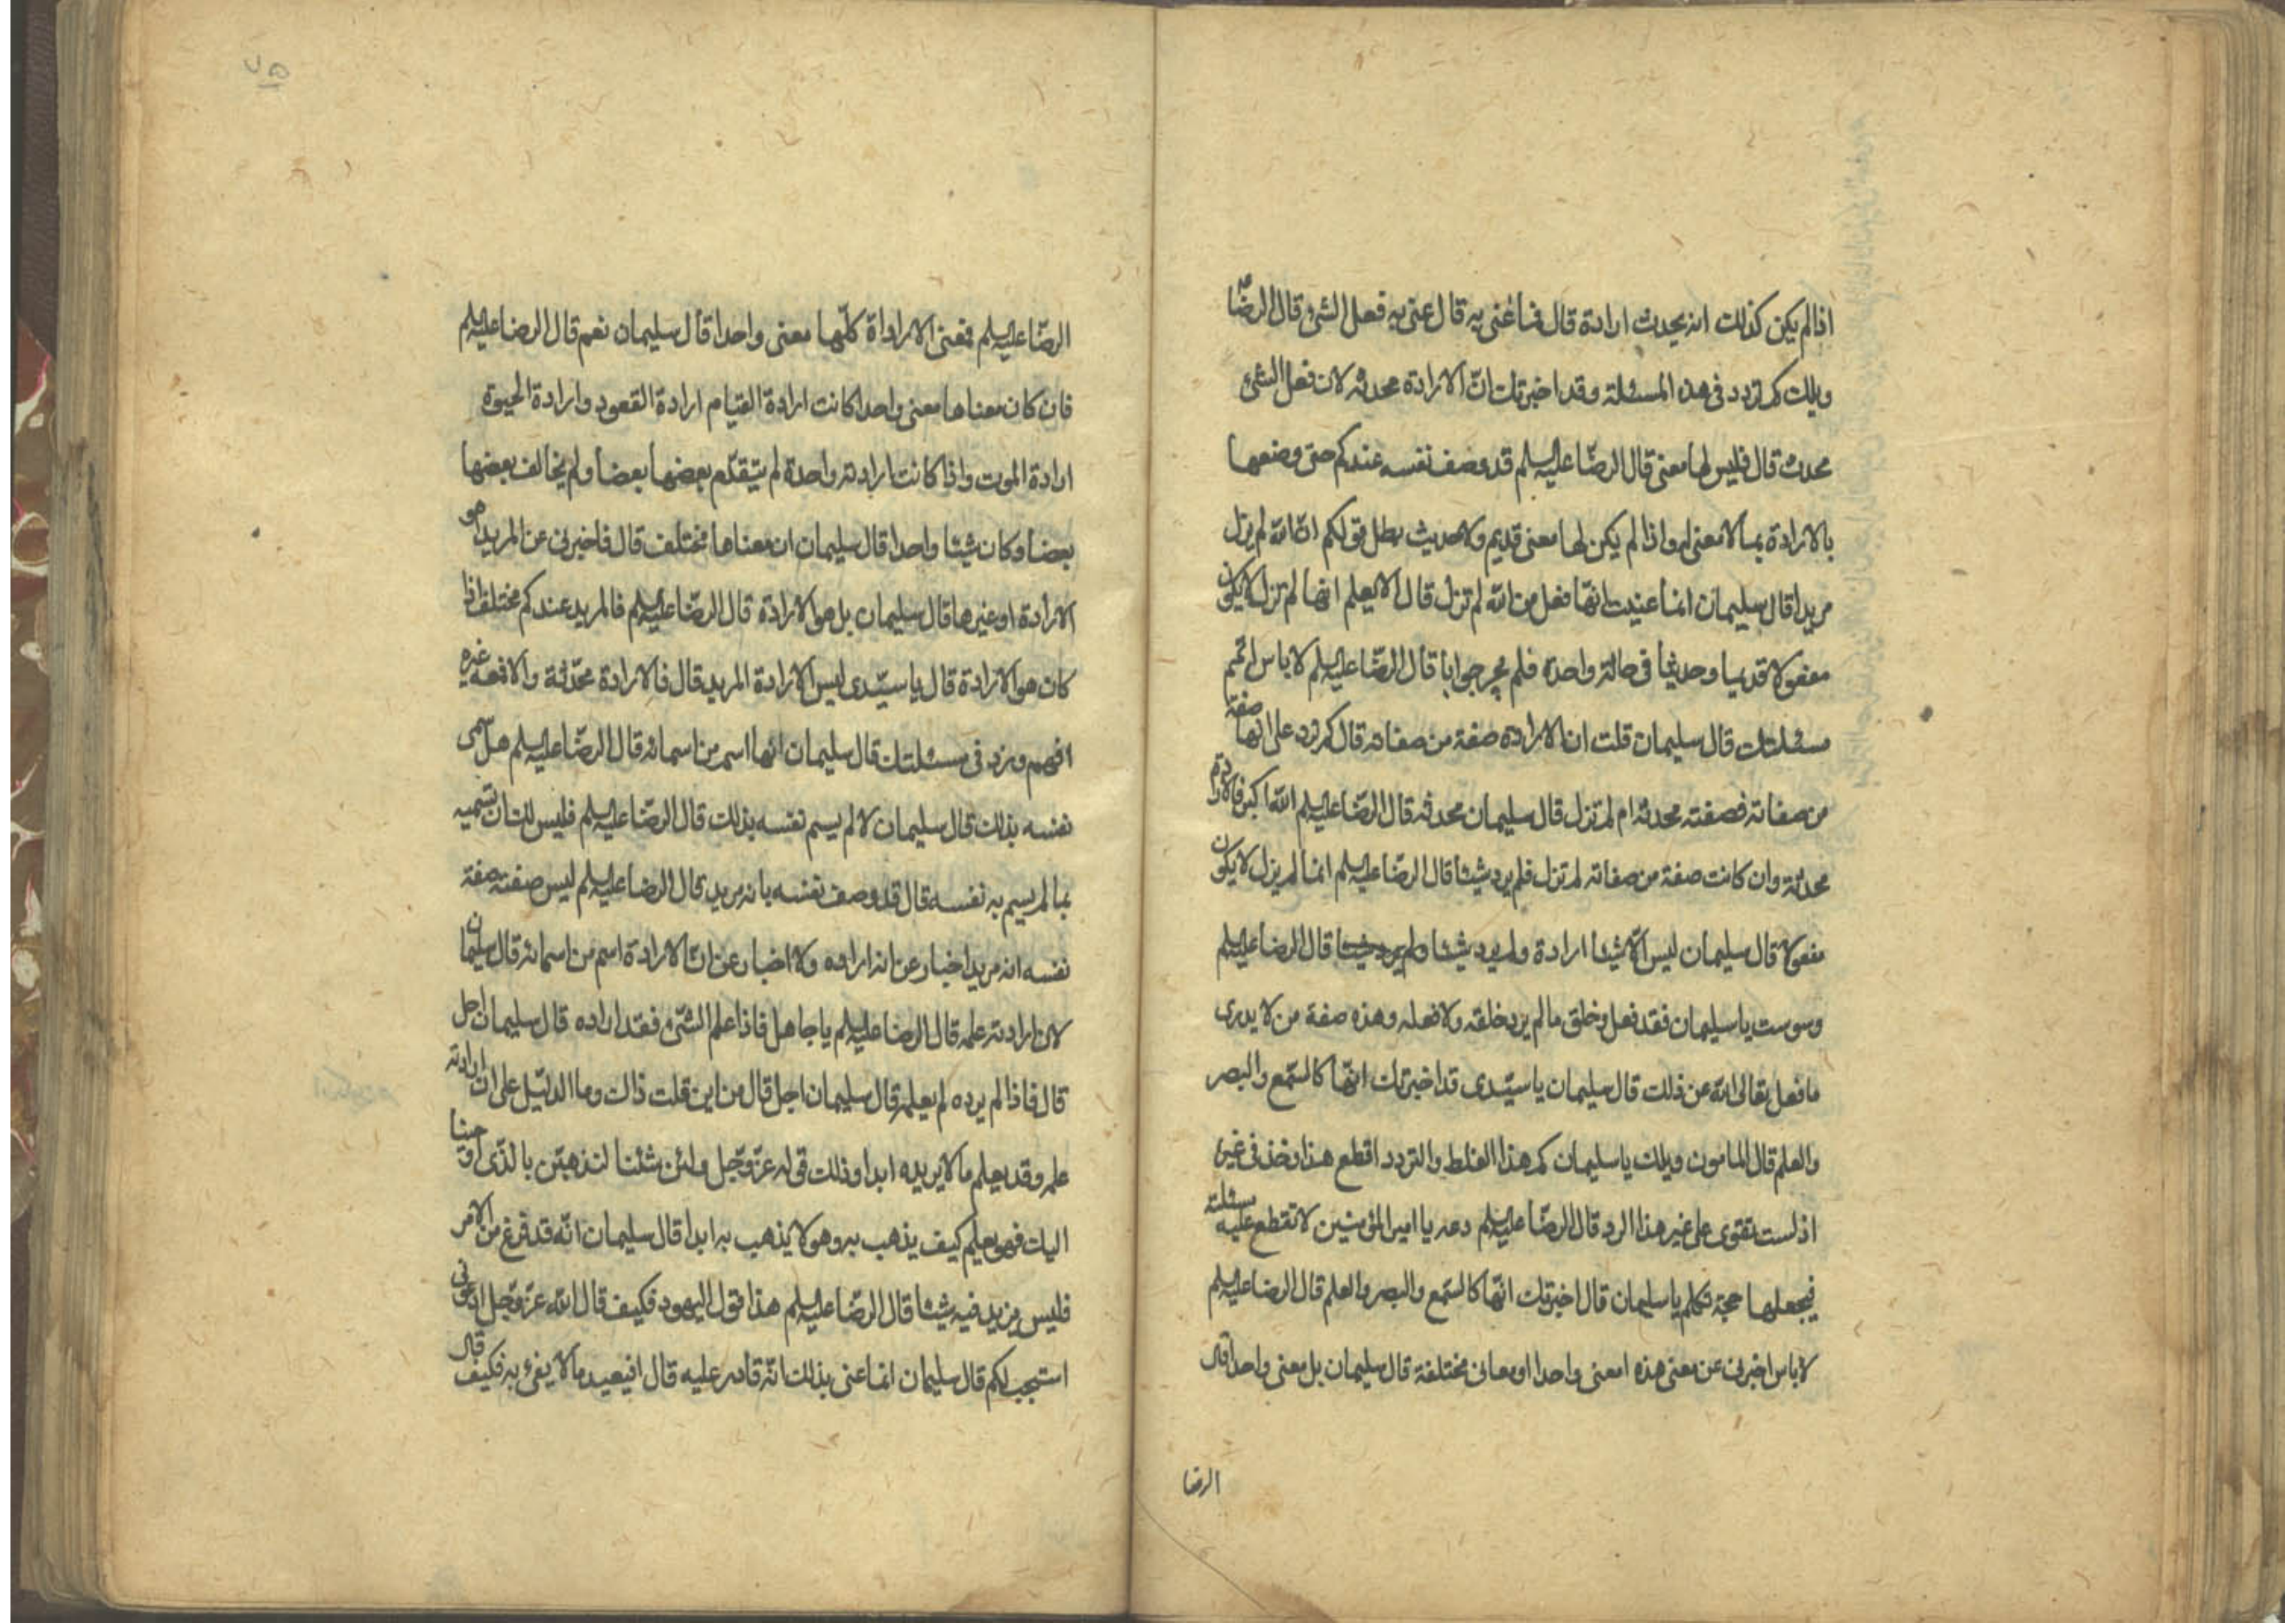 اذا لم يكن كذلك انه يحدث ارادة قال فما عنى به قال عنى به فعل الشئ قال الرضا ع
ويلك كم تردد في هذه المسئلة وقد اخبرتك ان الارادة محدثة لان فعل الشئ
محدث قال فليس لها معنى قال الرضا عليه السلم قد وصف نفسه عندكم حتى وصفها
بالارادة بما لا معنى له واذا لم يكن لها معنى قديم ولا حديث بطل قولكم ان الله لم يزل
مريدا قال سليمان انما عنيت انها فعل من الله لم تزل قال الا يعلم انها لم تزل لا يكون
مفعولا قديما وحديثا في حالة واحدة فلم يحر جوابا قال الرضا عليه السلم لا باس اتمم
مسئلتك قال سليمان قلت ان الارادة صفة من صفاته قال كم ترد على انها صفة
من صفاته فصفته محدثة ام لم تزل قال سليمان محدثة قال الرضا عليه السلم الله اكبر فالارادة
محدثة وان كانت صفة من صفاته لم تزل فلم يرد شيئا قال الرضا عليه السلم انما لم يزل لا يكون
مفعولا قال سليمان ليس الاشيئا ارادة ولم يرد شيئا ولم يرد شيئا قال الرضا عليه السلم
وسوست يا سليمان فقد فعل وخلق ما لم يرد خلقه ولا فعله وهذه صفة من لا يدرى
ما فعل تعالى الله عن ذلك قال سليمان يا سيّدى قد اخبرتك انها كالسّمع والبصر
والعلم قال المامون ويلك يا سليمان كم هذا الغلط والتردد اقطع هذا وخذ في غيره
اذ لست تقوى على غير هذا الرد قال الرضا عليه السلم دعه يا امير المؤمنين لا تقطع عليه مسئلته
فيجعلها حجة تكلم يا سليمان قال اخبرتك انها كالسّمع والبصر والعلم قال الرضا عليه السلم
لا باس اخبرنى عن معنى هذه امعنى واحدا او معان مختلفة قال سليمان بل معنى واحدا قال
الرضا
الرضا عليه السلم فمعنى الاراداة كلّها معنى واحدا قال سليمان نعم قال الرضا عليه السلم
فان كان معناها معنى واحدا كانت ارادة القيام ارادة القعود وارادة الحيوة
ارادة الموت واذا كانت ارادته واحدة لم يتقدّم بعضها بعضا ولم يخالف بعضها
بعضا وكان شيئا واحدا قال سليمان ان معناها مختلف قال فاخبرنى عن المريد اهو
الارادة او غيرها قال سليمان بل هو الارادة قال الرضا عليه السلم فالمريد عندكم مختلف اذا
كان هو الارادة قال يا سيّدى ليس الارادة المريد قال فالارادة محدّثة والا فمعه غيره
افهم وزد في مسئلتك قال سليمان انها اسم من اسمائه قال الرضا عليه السلم هل سمى
نفسه بذلك قال سليمان لا لم يسم نفسه بذلك قال الرضا عليه السلم فليس لك ان تسميه
بما لم يسم به نفسه قال قد وصف نفسه بانه مريد قال الرضا عليه السلم ليس صفته صفة
نفسه انه مريد اخبار عن انه اراده ولا اخبار عن ان الارادة اسم من اسمائه قال سليمان
لان ارادته علمه قال الرضا عليه السلم يا جاهل فاذا علم الشئ فقد اراده قال سليمان اجل
قال فاذا لم يرده لم يعلمه قال سليمان اجل قال من اين قلت ذاك وما الدليل على ان ارادته
علمه وقد يعلم ما لا يريده ابدا وذلك قوله عزّ وجل ولئن شئنا لنذهبن بالذى اوحينا
اليك فهو يعلم كيف يذهب به وهو لا يذهب به ابدا قال سليمان انّه قد فرغ من الامر
فليس يزيد فيه شيئا قال الرضا عليه السلم هذا قول اليهود فكيف قال الله عزّ وجل ادعونى
استجب لكم قال سليمان انما عنى بذلك انّه قادر عليه قال افيعيد ما لا يفئ به فكيف قال